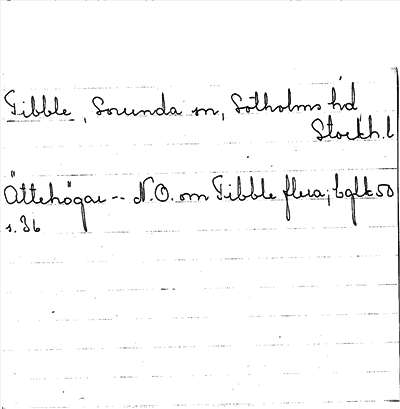 Tibble, Sorunda sn, Sotholms hd
Stockh. l
Ättehögar -- N.O. om Tibble flera; bglk 50
s. 36